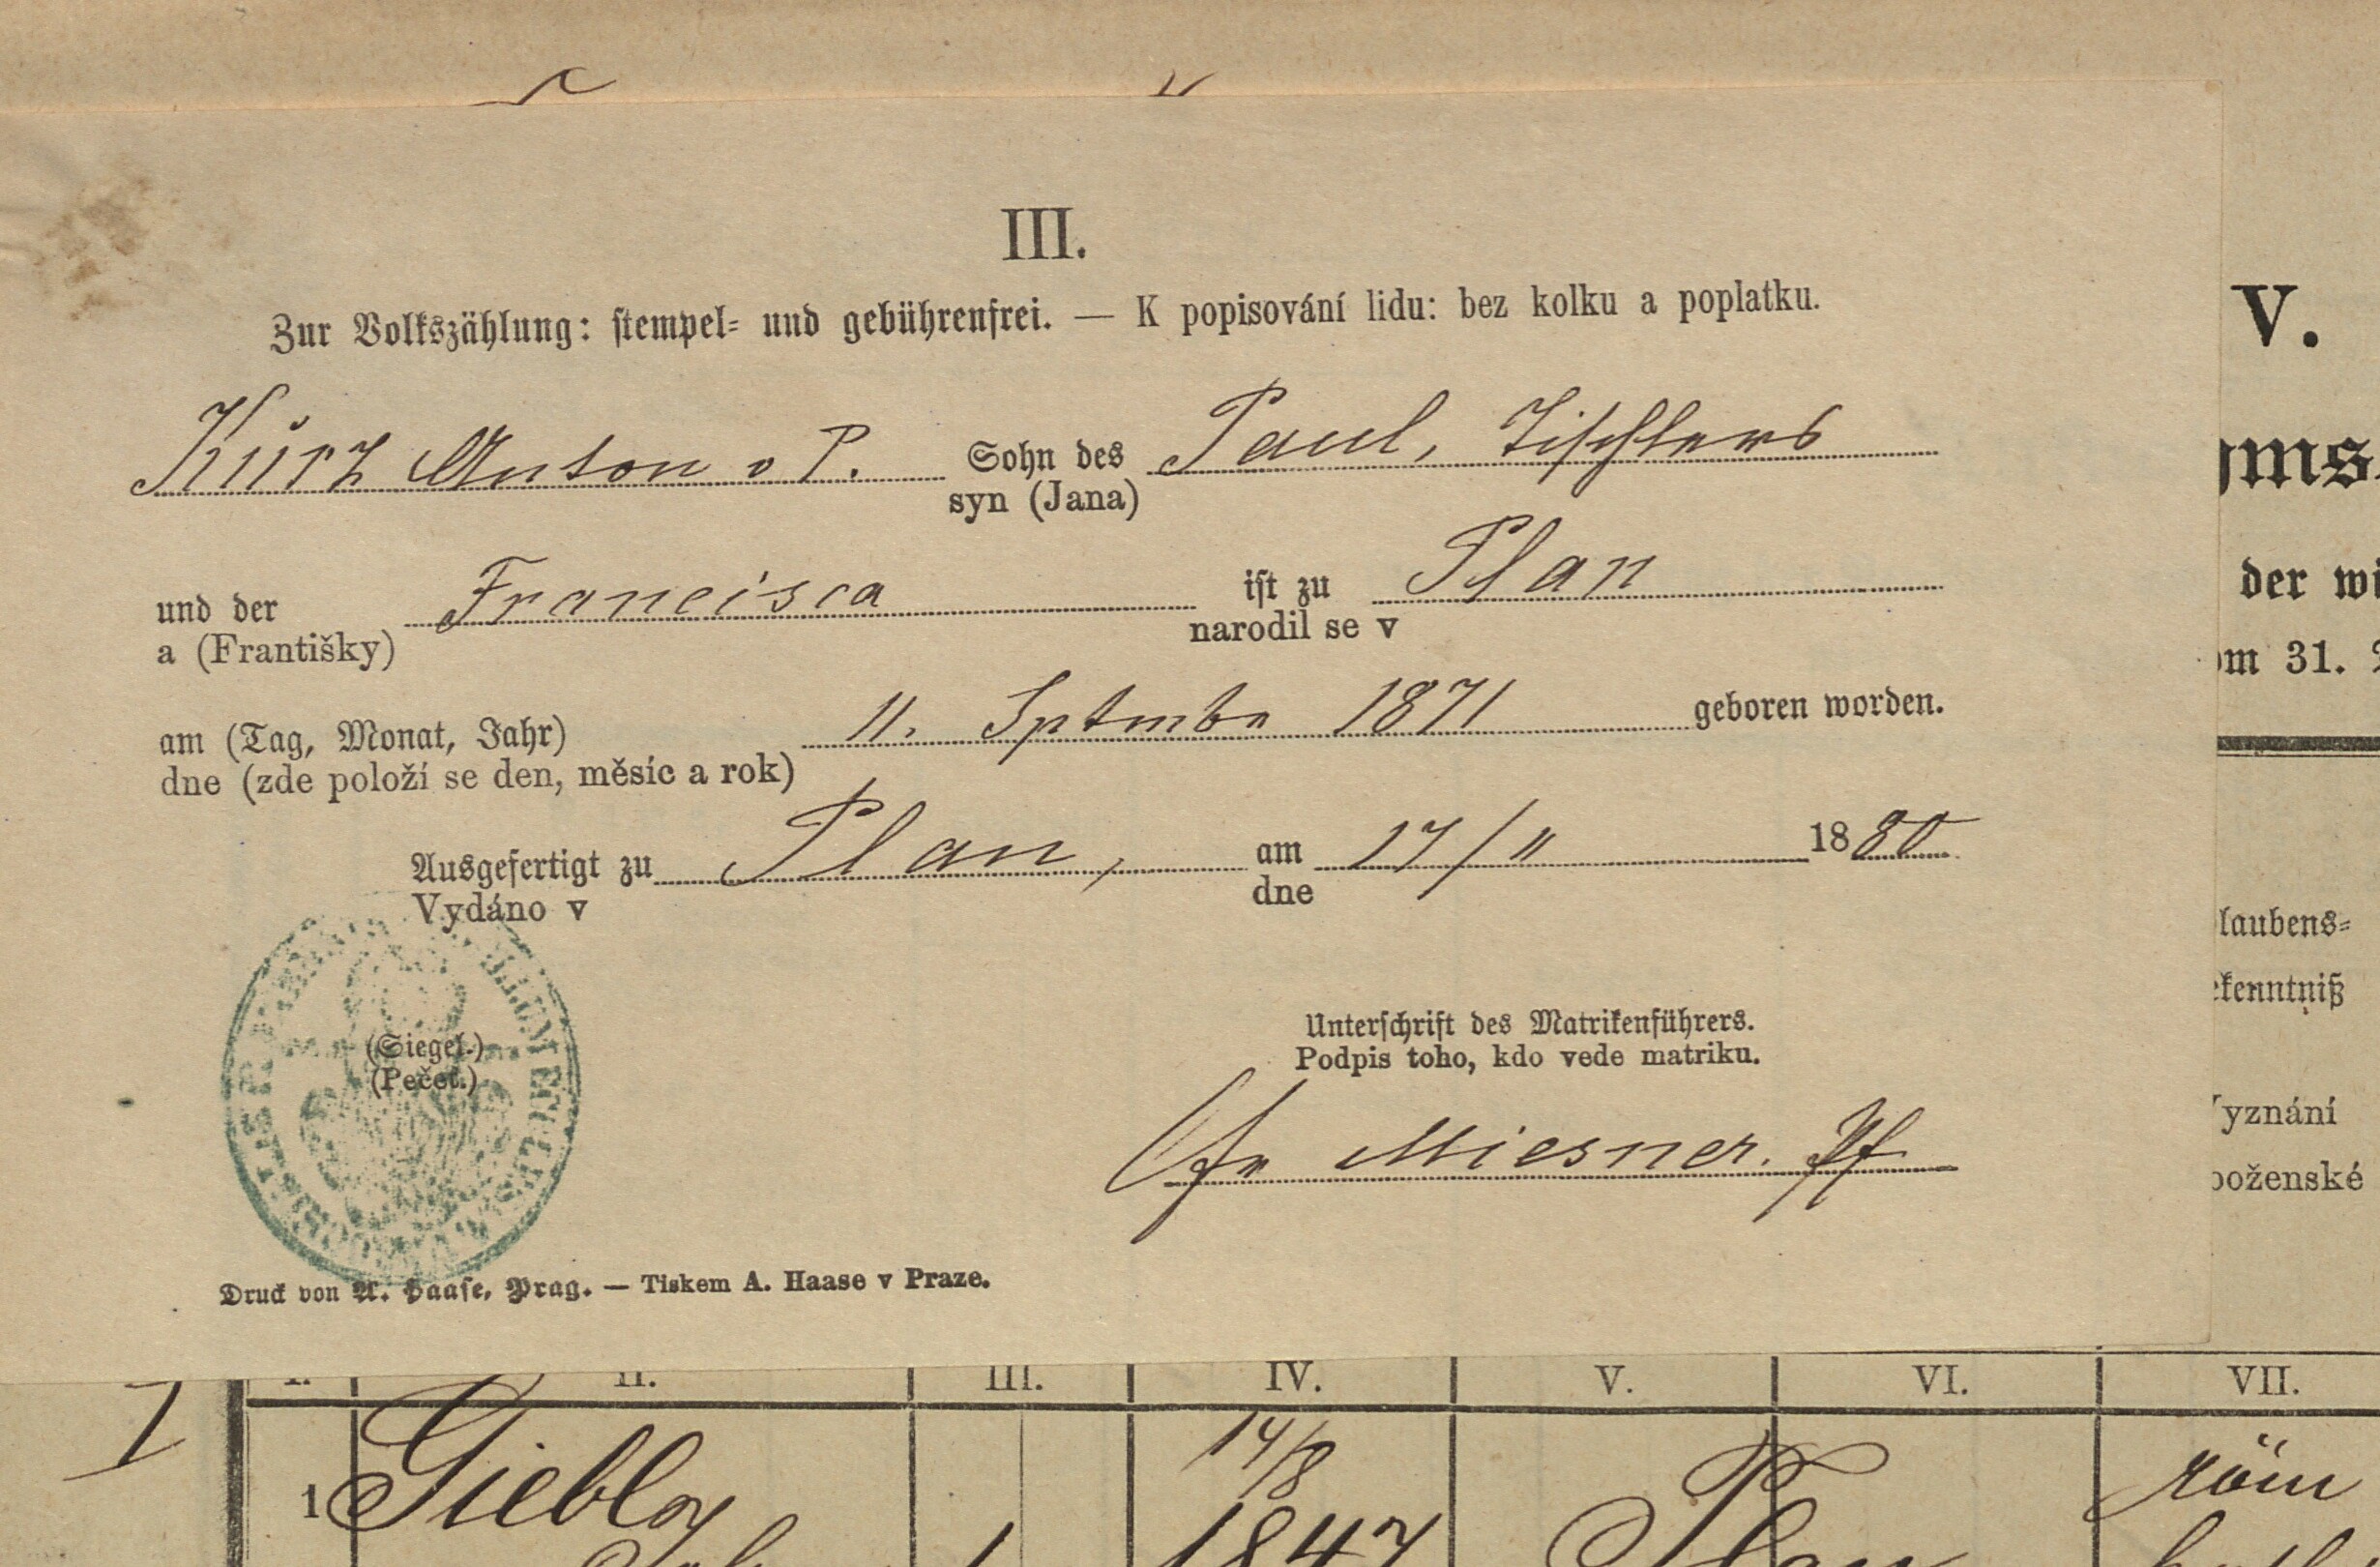 III.
Zur Volkszählung: stempel- und gebührenfrei. — K popisování lidu: bez kolku a poplatku.
Kurz Anton v P. Sohn des Paul, Tischlers
syn (Jana)
und der Francisca ist zu Plan
a (Františky) narodil se v
am (Tag, Monat, Jahr) 11. Septmbr 1871 geboren worden.
dne (zde položí se den, měsíc a rok)
Ausgefertigt zu Plan, am 17/11 1880
Vydáno v dne
(Siegel.)
(Pečeť.)
Unterschrift des Matrikenführers.
Podpis toho, kdo vede matriku.
Miesner. Pf
Druck von A. Haase, Prag. — Tiskem A. Haase v Praze.
V.
der
31.
laubens=
kenntniß
yznání
boženské
I. II. III. IV. V. VI. VII.
1 14/8 röm
1 1847 Plan